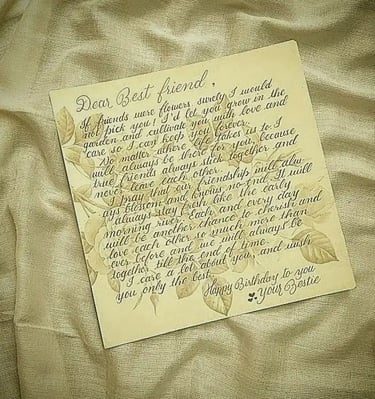 Dear Best friend,
If friends were flowers surely I would
not pick you! I'd let you grow in the
garden and cultivate you with love and
care so I can keep you forever.
No matter where life takes us to I
will always be there for you, because
true friends always stick together and
never leave each other.
I pray that our friendship will alw-
ays blossom and knows no end. It will
always stay fresh like the early
morning river. Each and every day
will be another chance to cherish and
love each other so much more than
ever before and we will always be
together till the end of time.
I care a lot about you, and wish
you only the best.
Happy Birthday to you
Your Bestie